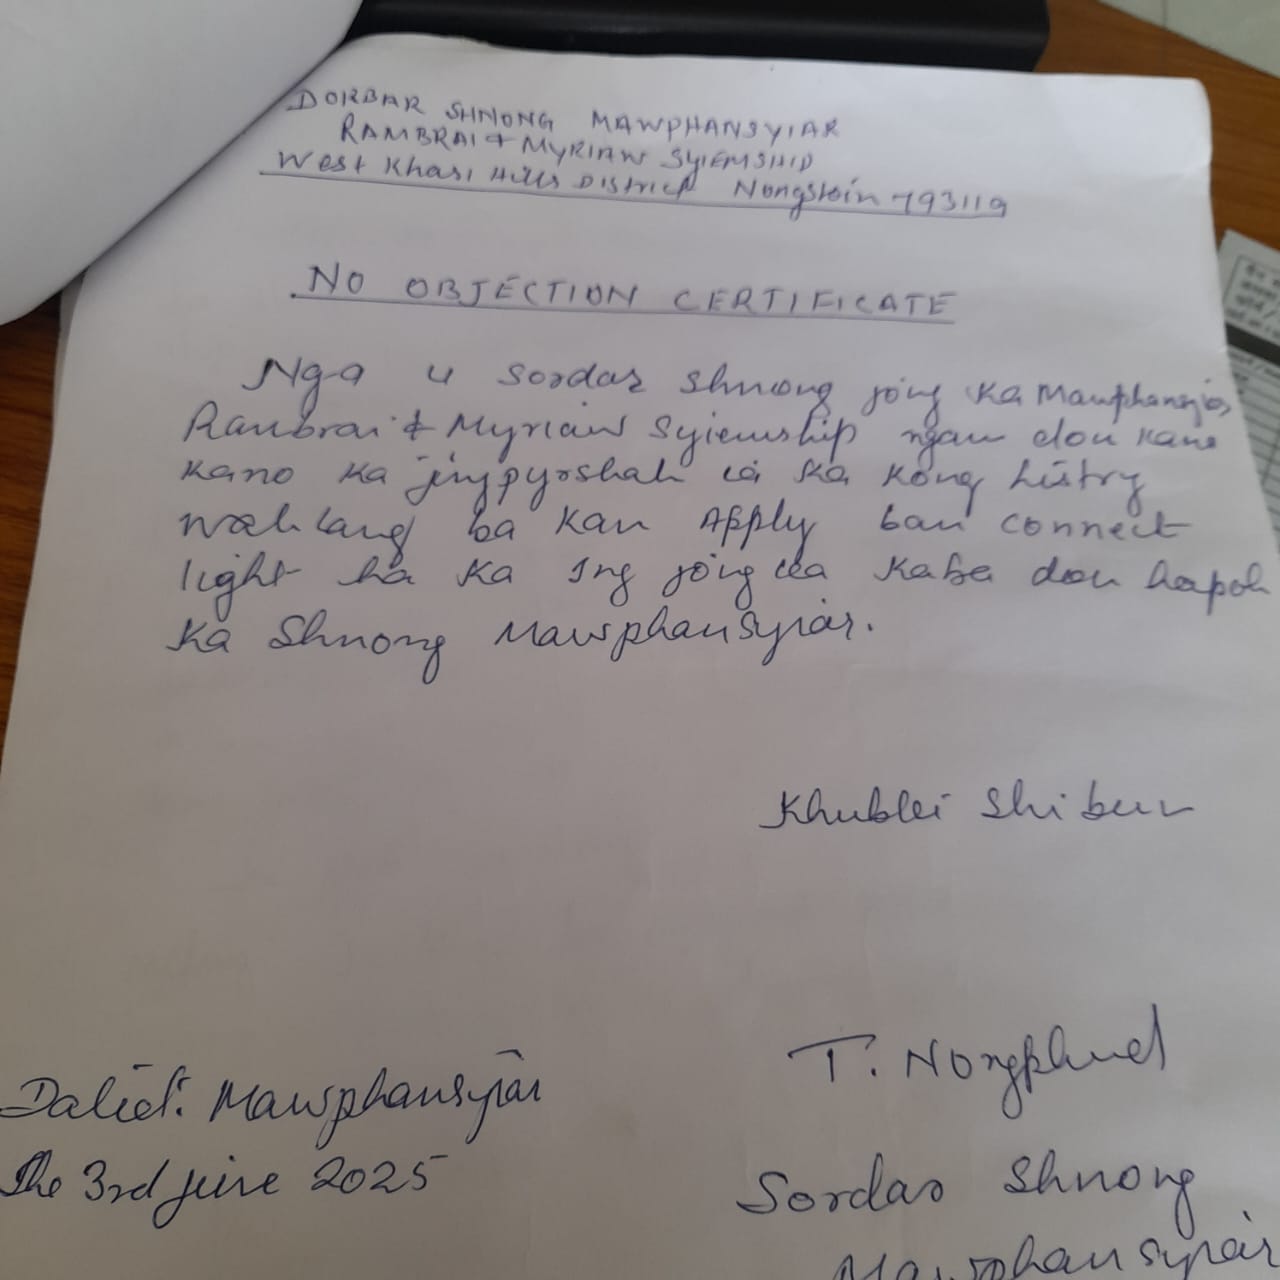 DORBAR SHNONG MAWPHANSYIAR
RAMBRAI & MYRIAW SYIEMSHIP
West Khasi Hills District Nongstoin 793119
NO OBJECTION CERTIFICATE
Nga u Sordar Shnong jong ka Mawphansyiar
Rambrai & Myriaw Syiemship ngam don kano
kano ka jingpyrshah ia ka Kong
Wahlang ba kan Apply ban connect
light ha ka Ing jong ka kaba don hapoh
ka Shnong Mawphansyiar.
Khublei Shibun
T. Nongphud
Dated: Mawphansyiar
The 3rd June 2025
Sordar Shnong
Mawphansyiar